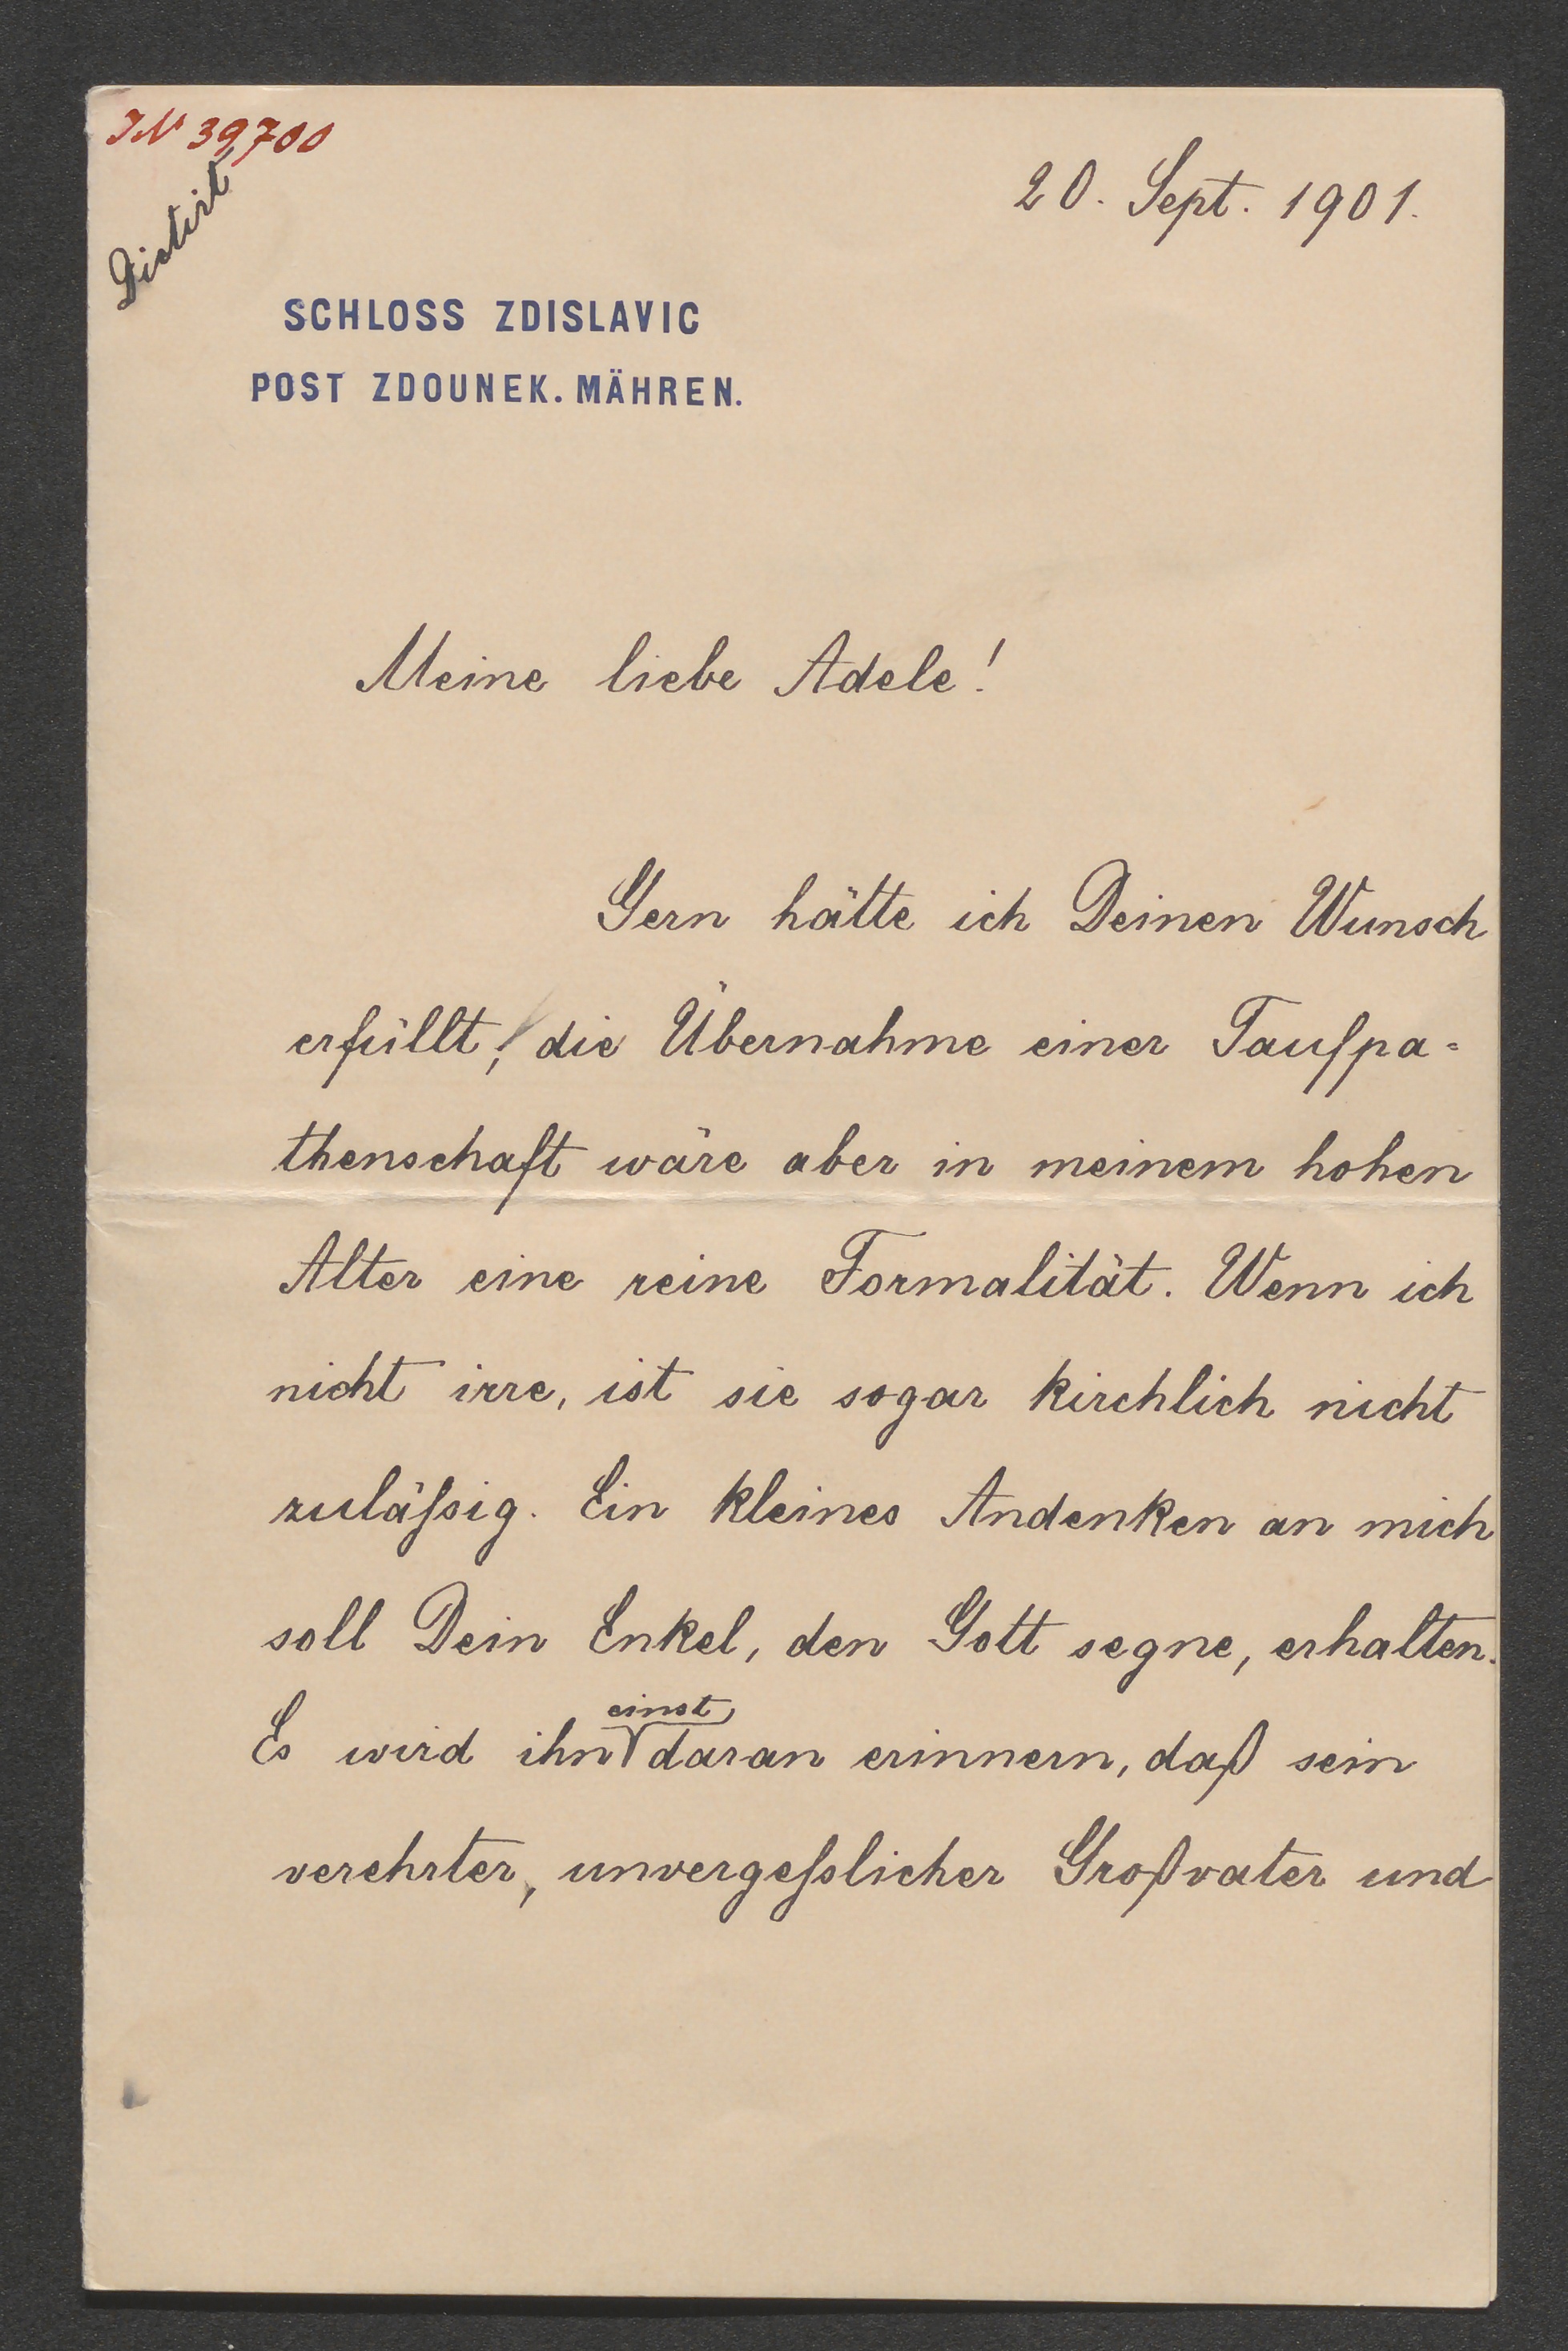 IN 39700
Dictirt
20. Sept. 1901.
SCHLOSS ZDISLAVIC
POST ZDOUNEK. MÄHREN.
Meine liebe Adele!
Gern hätte ich Deinen Wunsch
erfüllt, die Übernahme einer Taufpa-
thenschaft wäre aber in meinem hohen
Alter eine reine Formalität. Wenn ich
nicht irre, ist sie sogar kirchlich nicht
zuläſsig. Ein kleines Andenken an mich
soll Dein Enkel, den Gott segne, erhalten.
einst
Es wird ihn daran erinnern, daß sein
verehrter, unvergeſslicher Großvater und